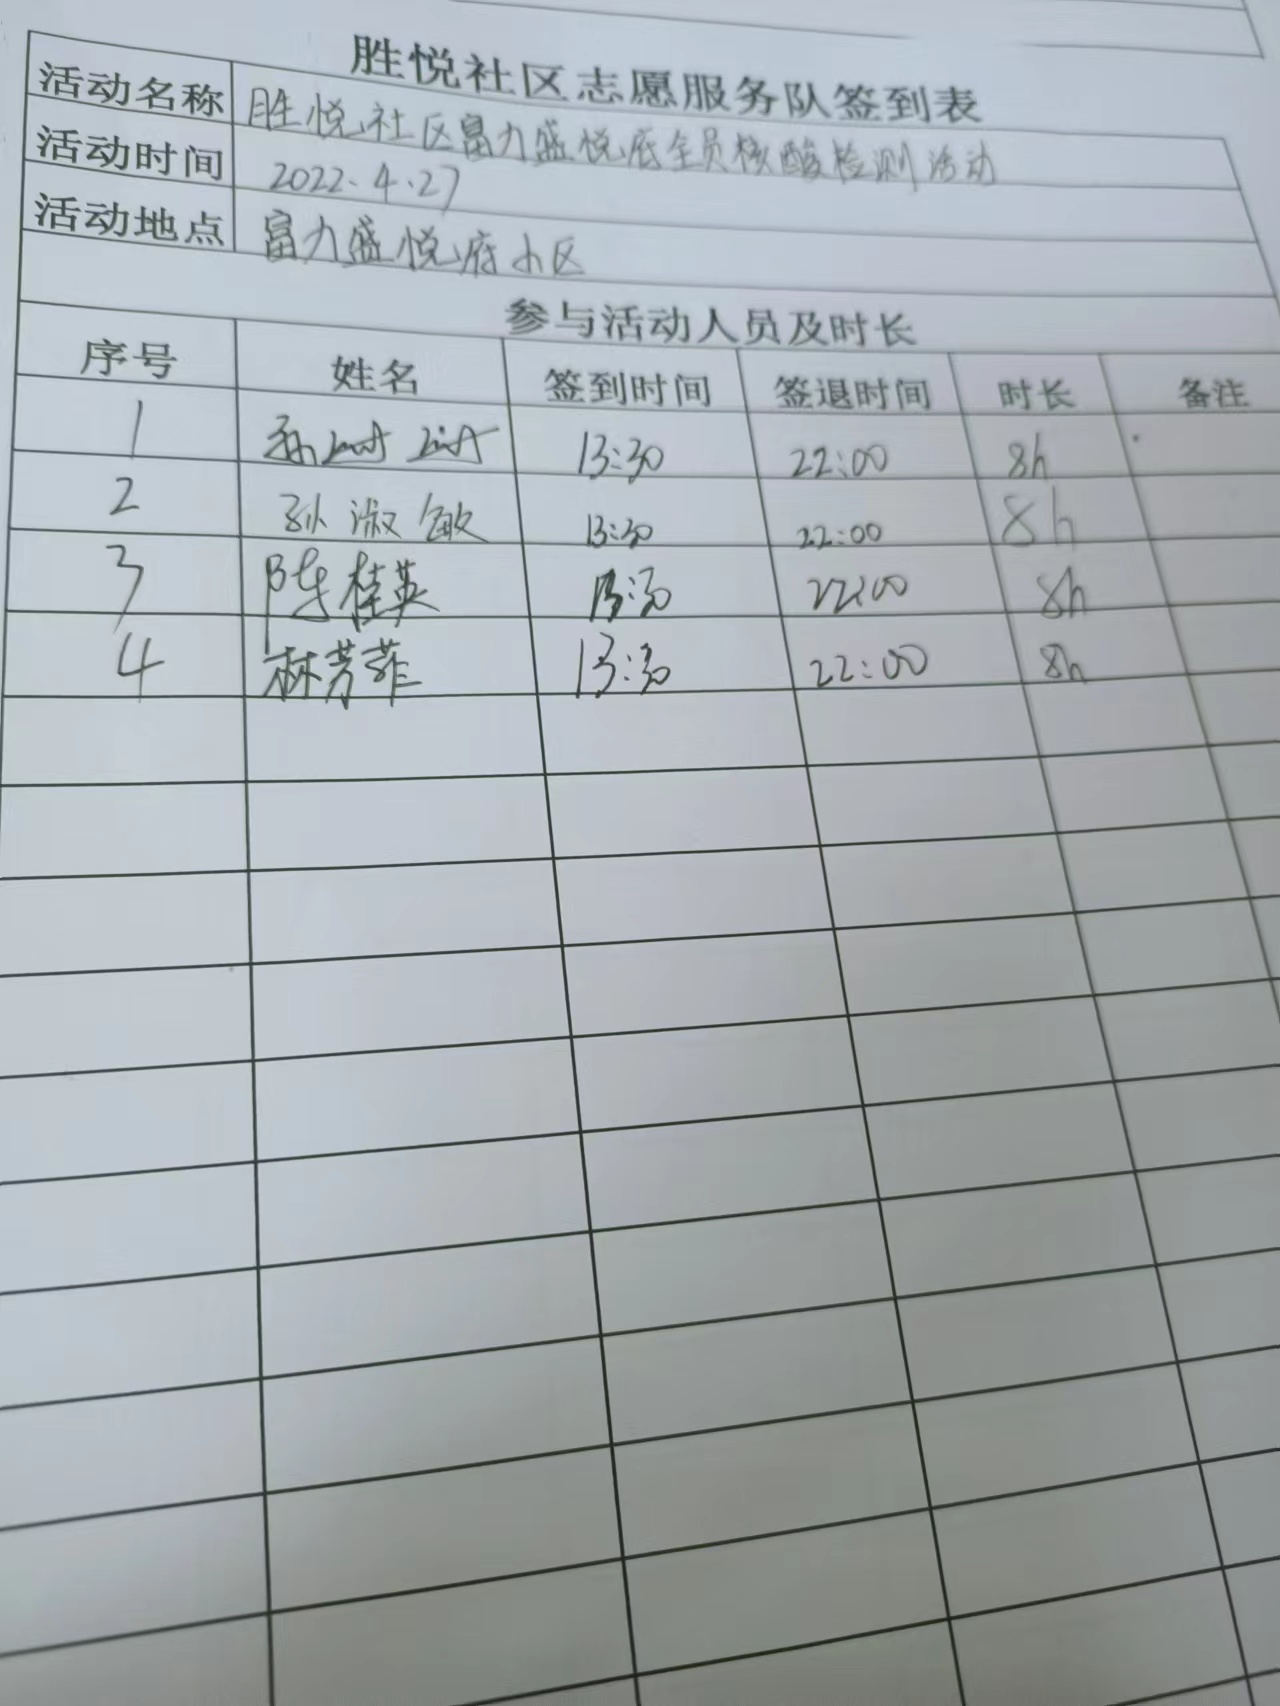 胜悦社区志愿服务队签到表
活动名称 胜悦社区富力盛悦底全员核酸检测活动
活动时间 2022.4.27
活动地点 富力盛悦府小区
参与活动人员及时长
序号 姓名 签到时间 签退时间 时长 备注
1 孙 13:30 22:00 8h
2 孙淑敏 13:30 22:00 8h
3 陈桂英 13:30 22:00 8h
4 林芳菲 13:30 22:00 8h